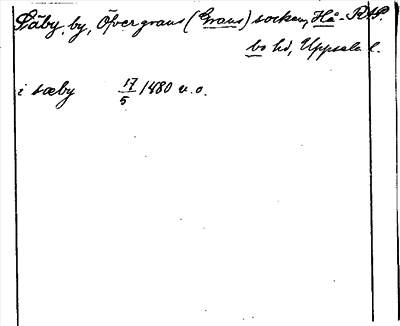 Säby, by, Öfvergrans (Grans) socken, Hå-
bo hd, Uppsala l.
i sæby 17/5 1480 v. o.